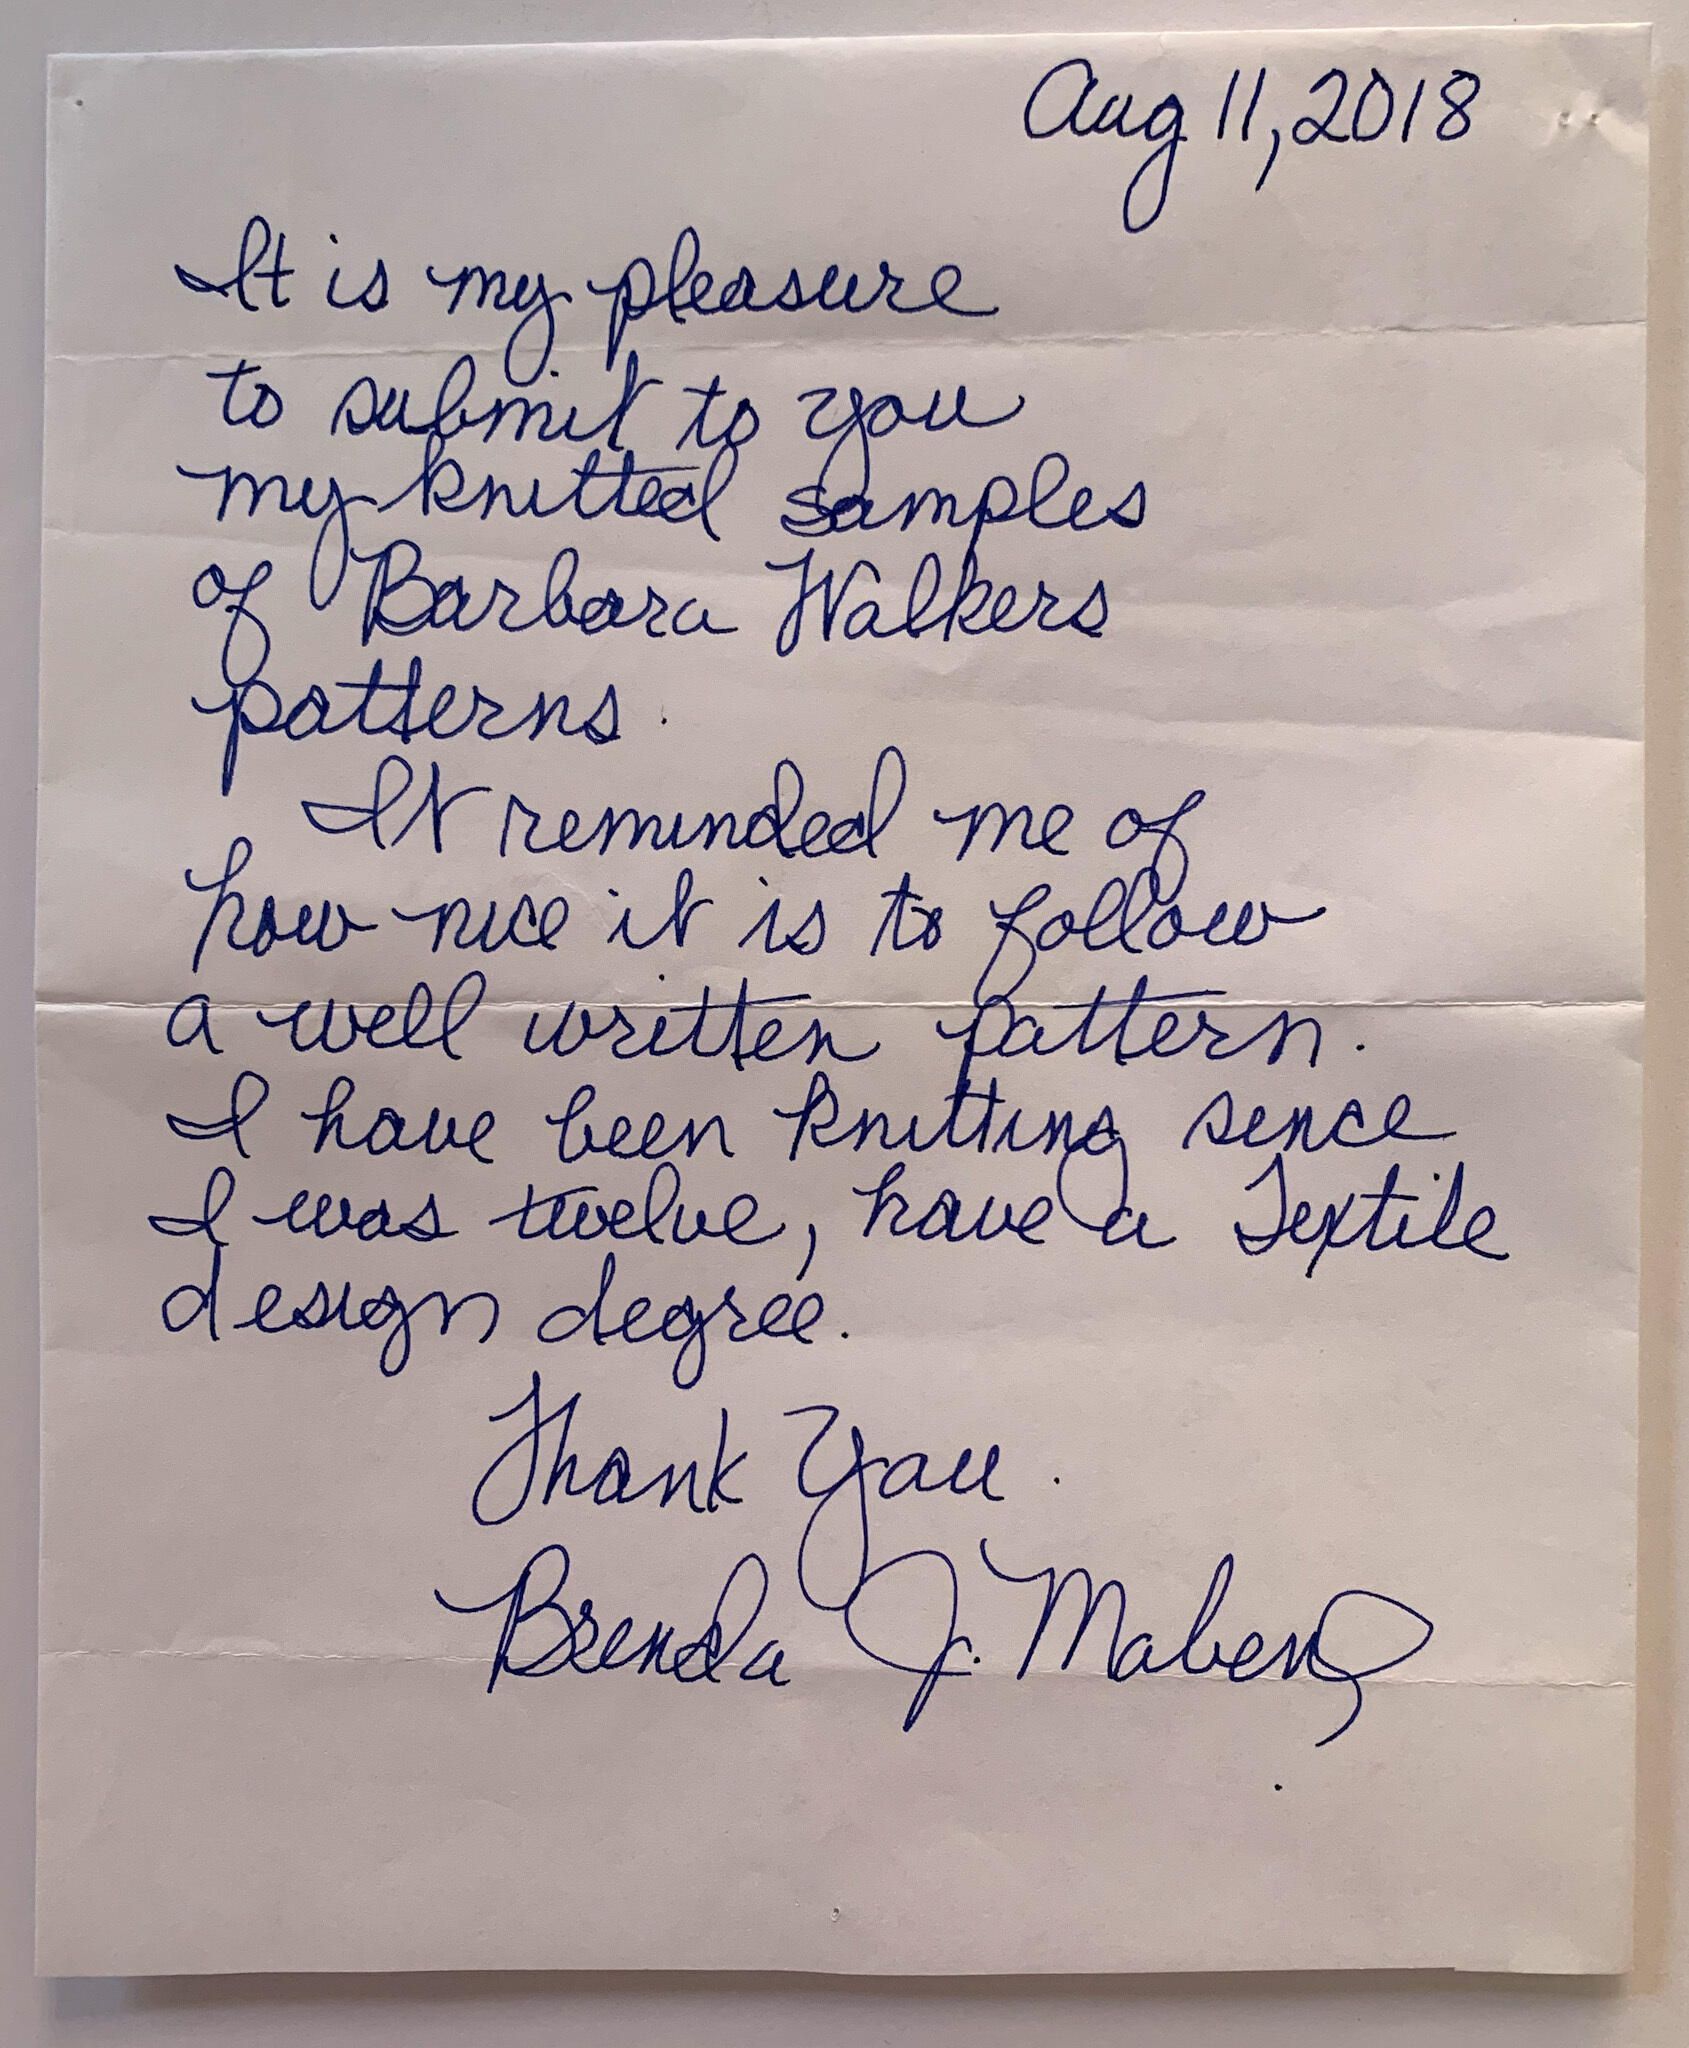 Aug 11, 2018
It is my pleasure
to submit to you
my knitted samples
of Barbara Walkers
patterns.
It reminded me of
how nice it is to follow
a well written pattern.
I have been knitting sence
I was twelve, have a Textile
design degree.
Thank You.
Brenda J. Maben